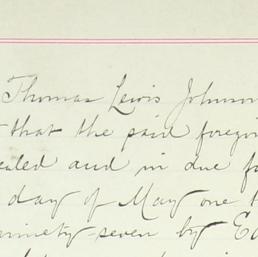 Thomas Lewis Johnson
that the said foregoi
ealed and in due fo
day of May one t
ninety-seven by Ed